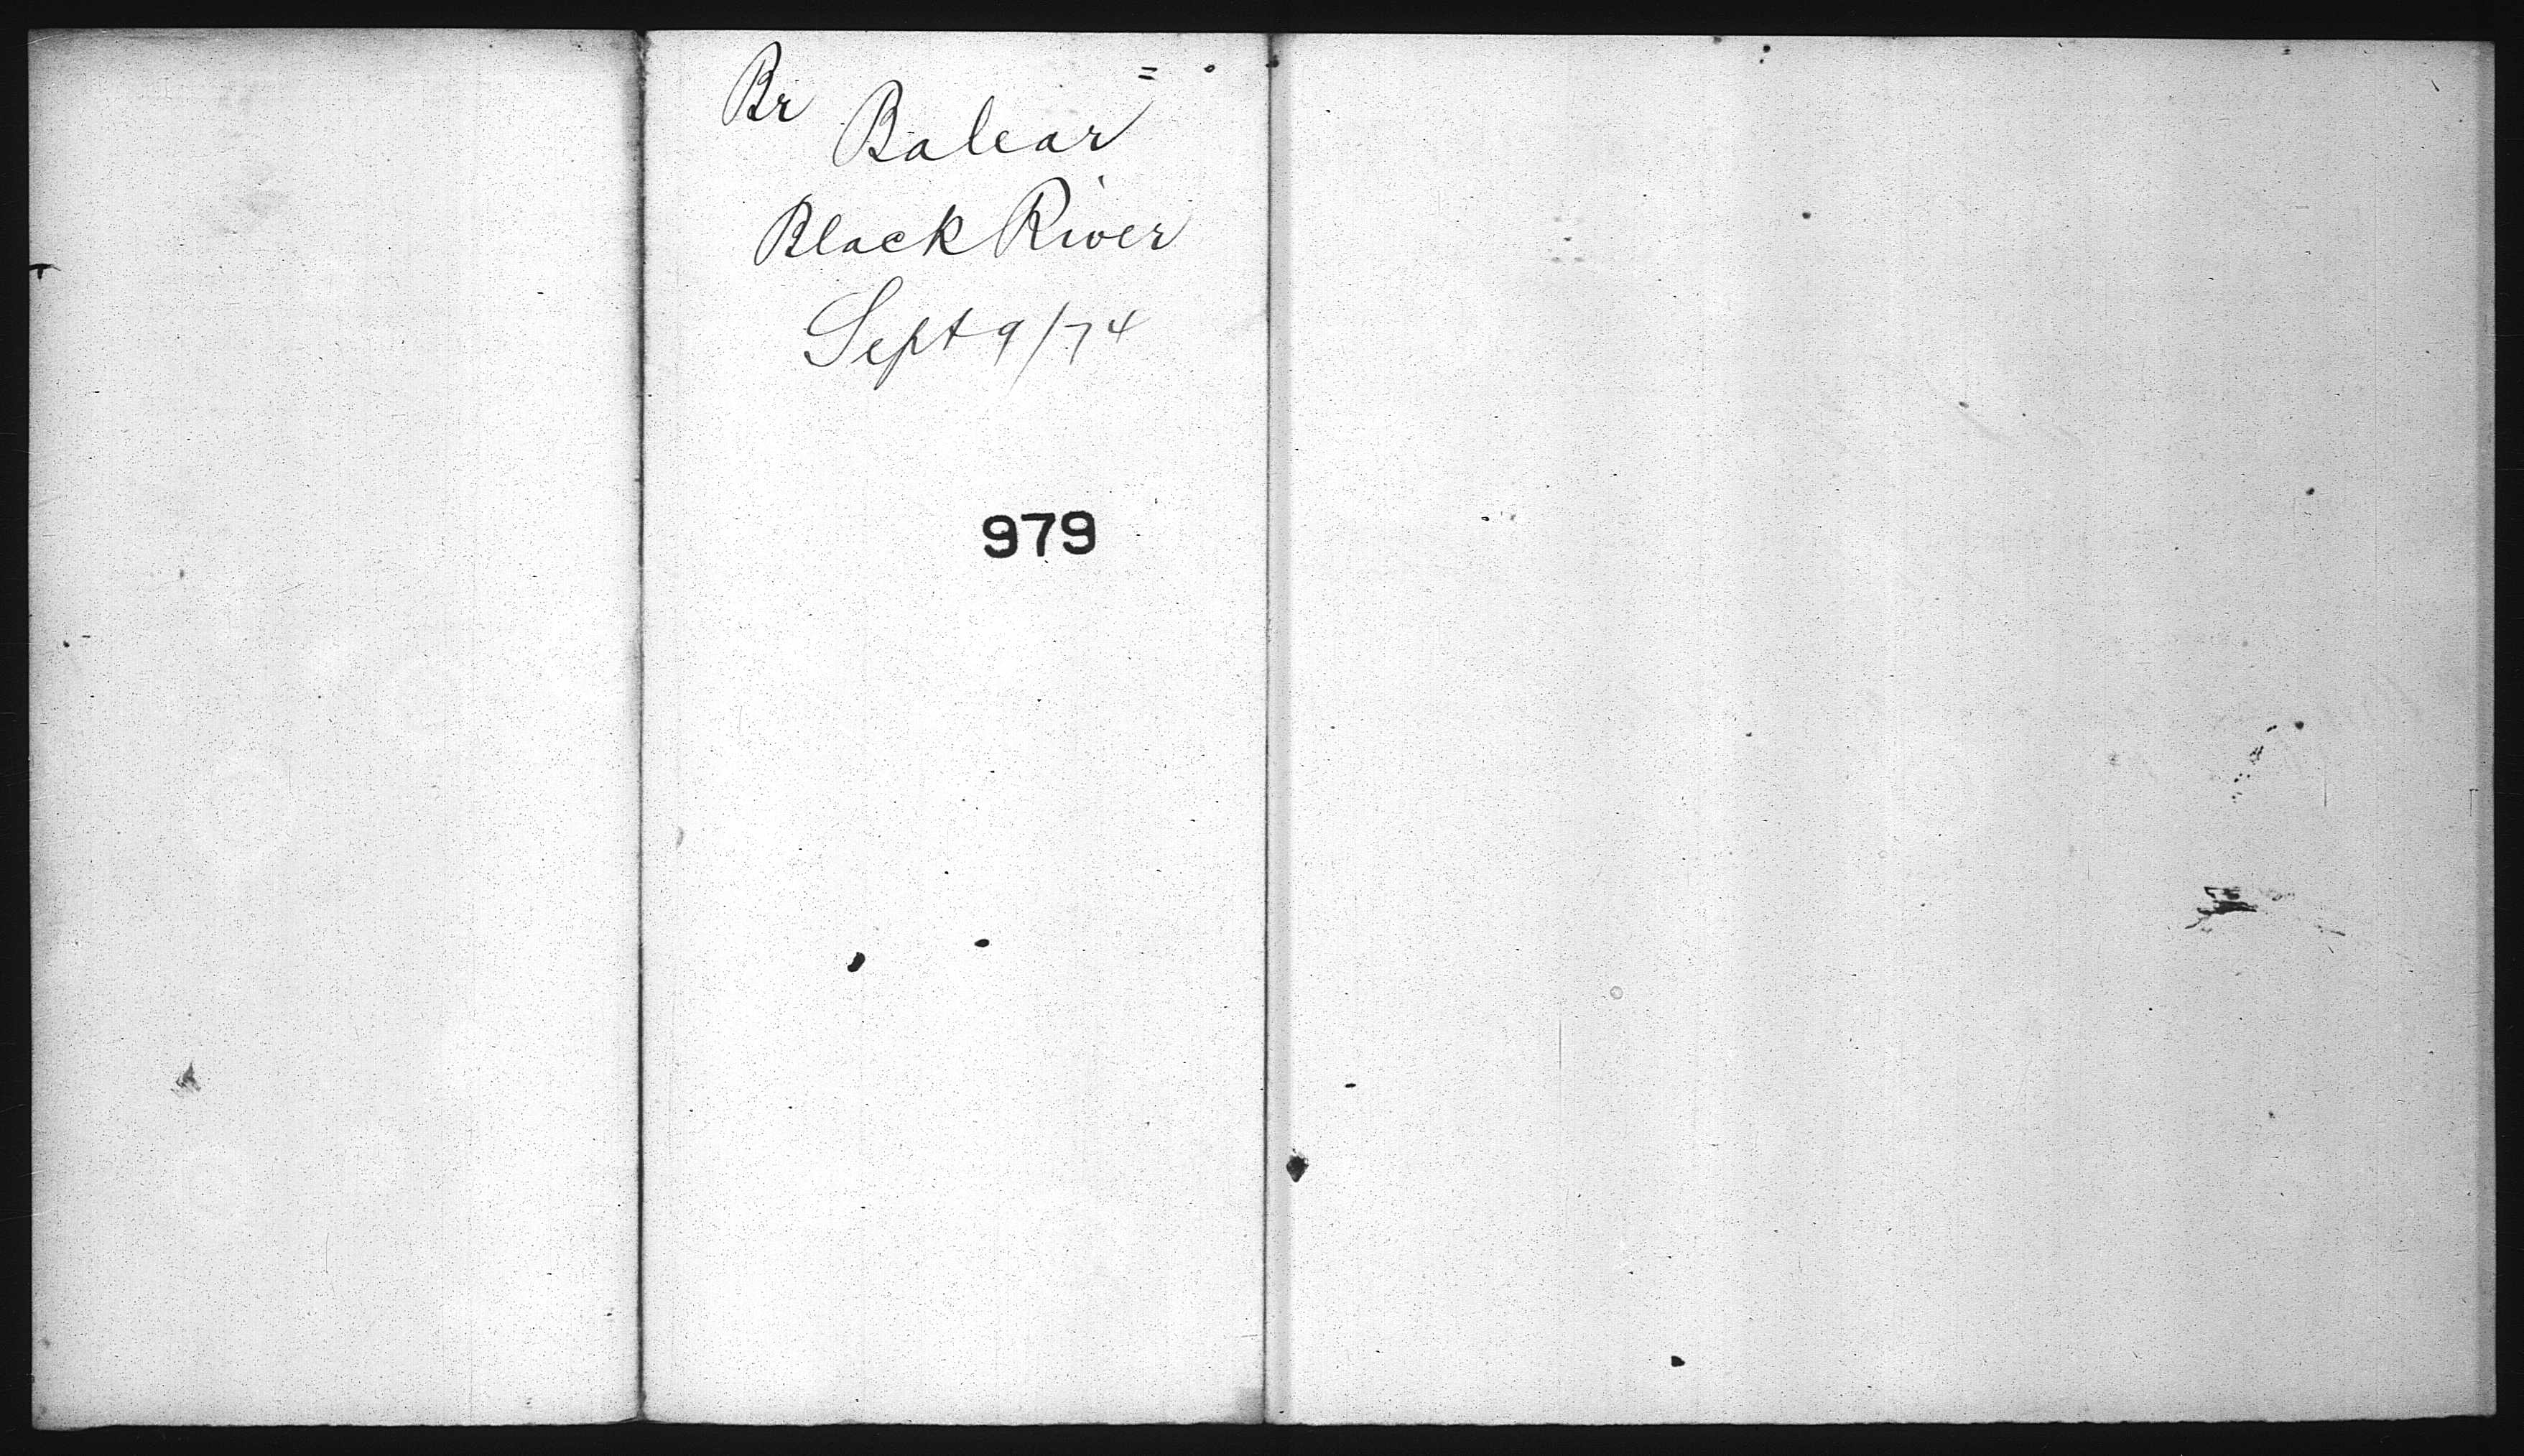 Br
Balear
Black River
Sept 9/74
979